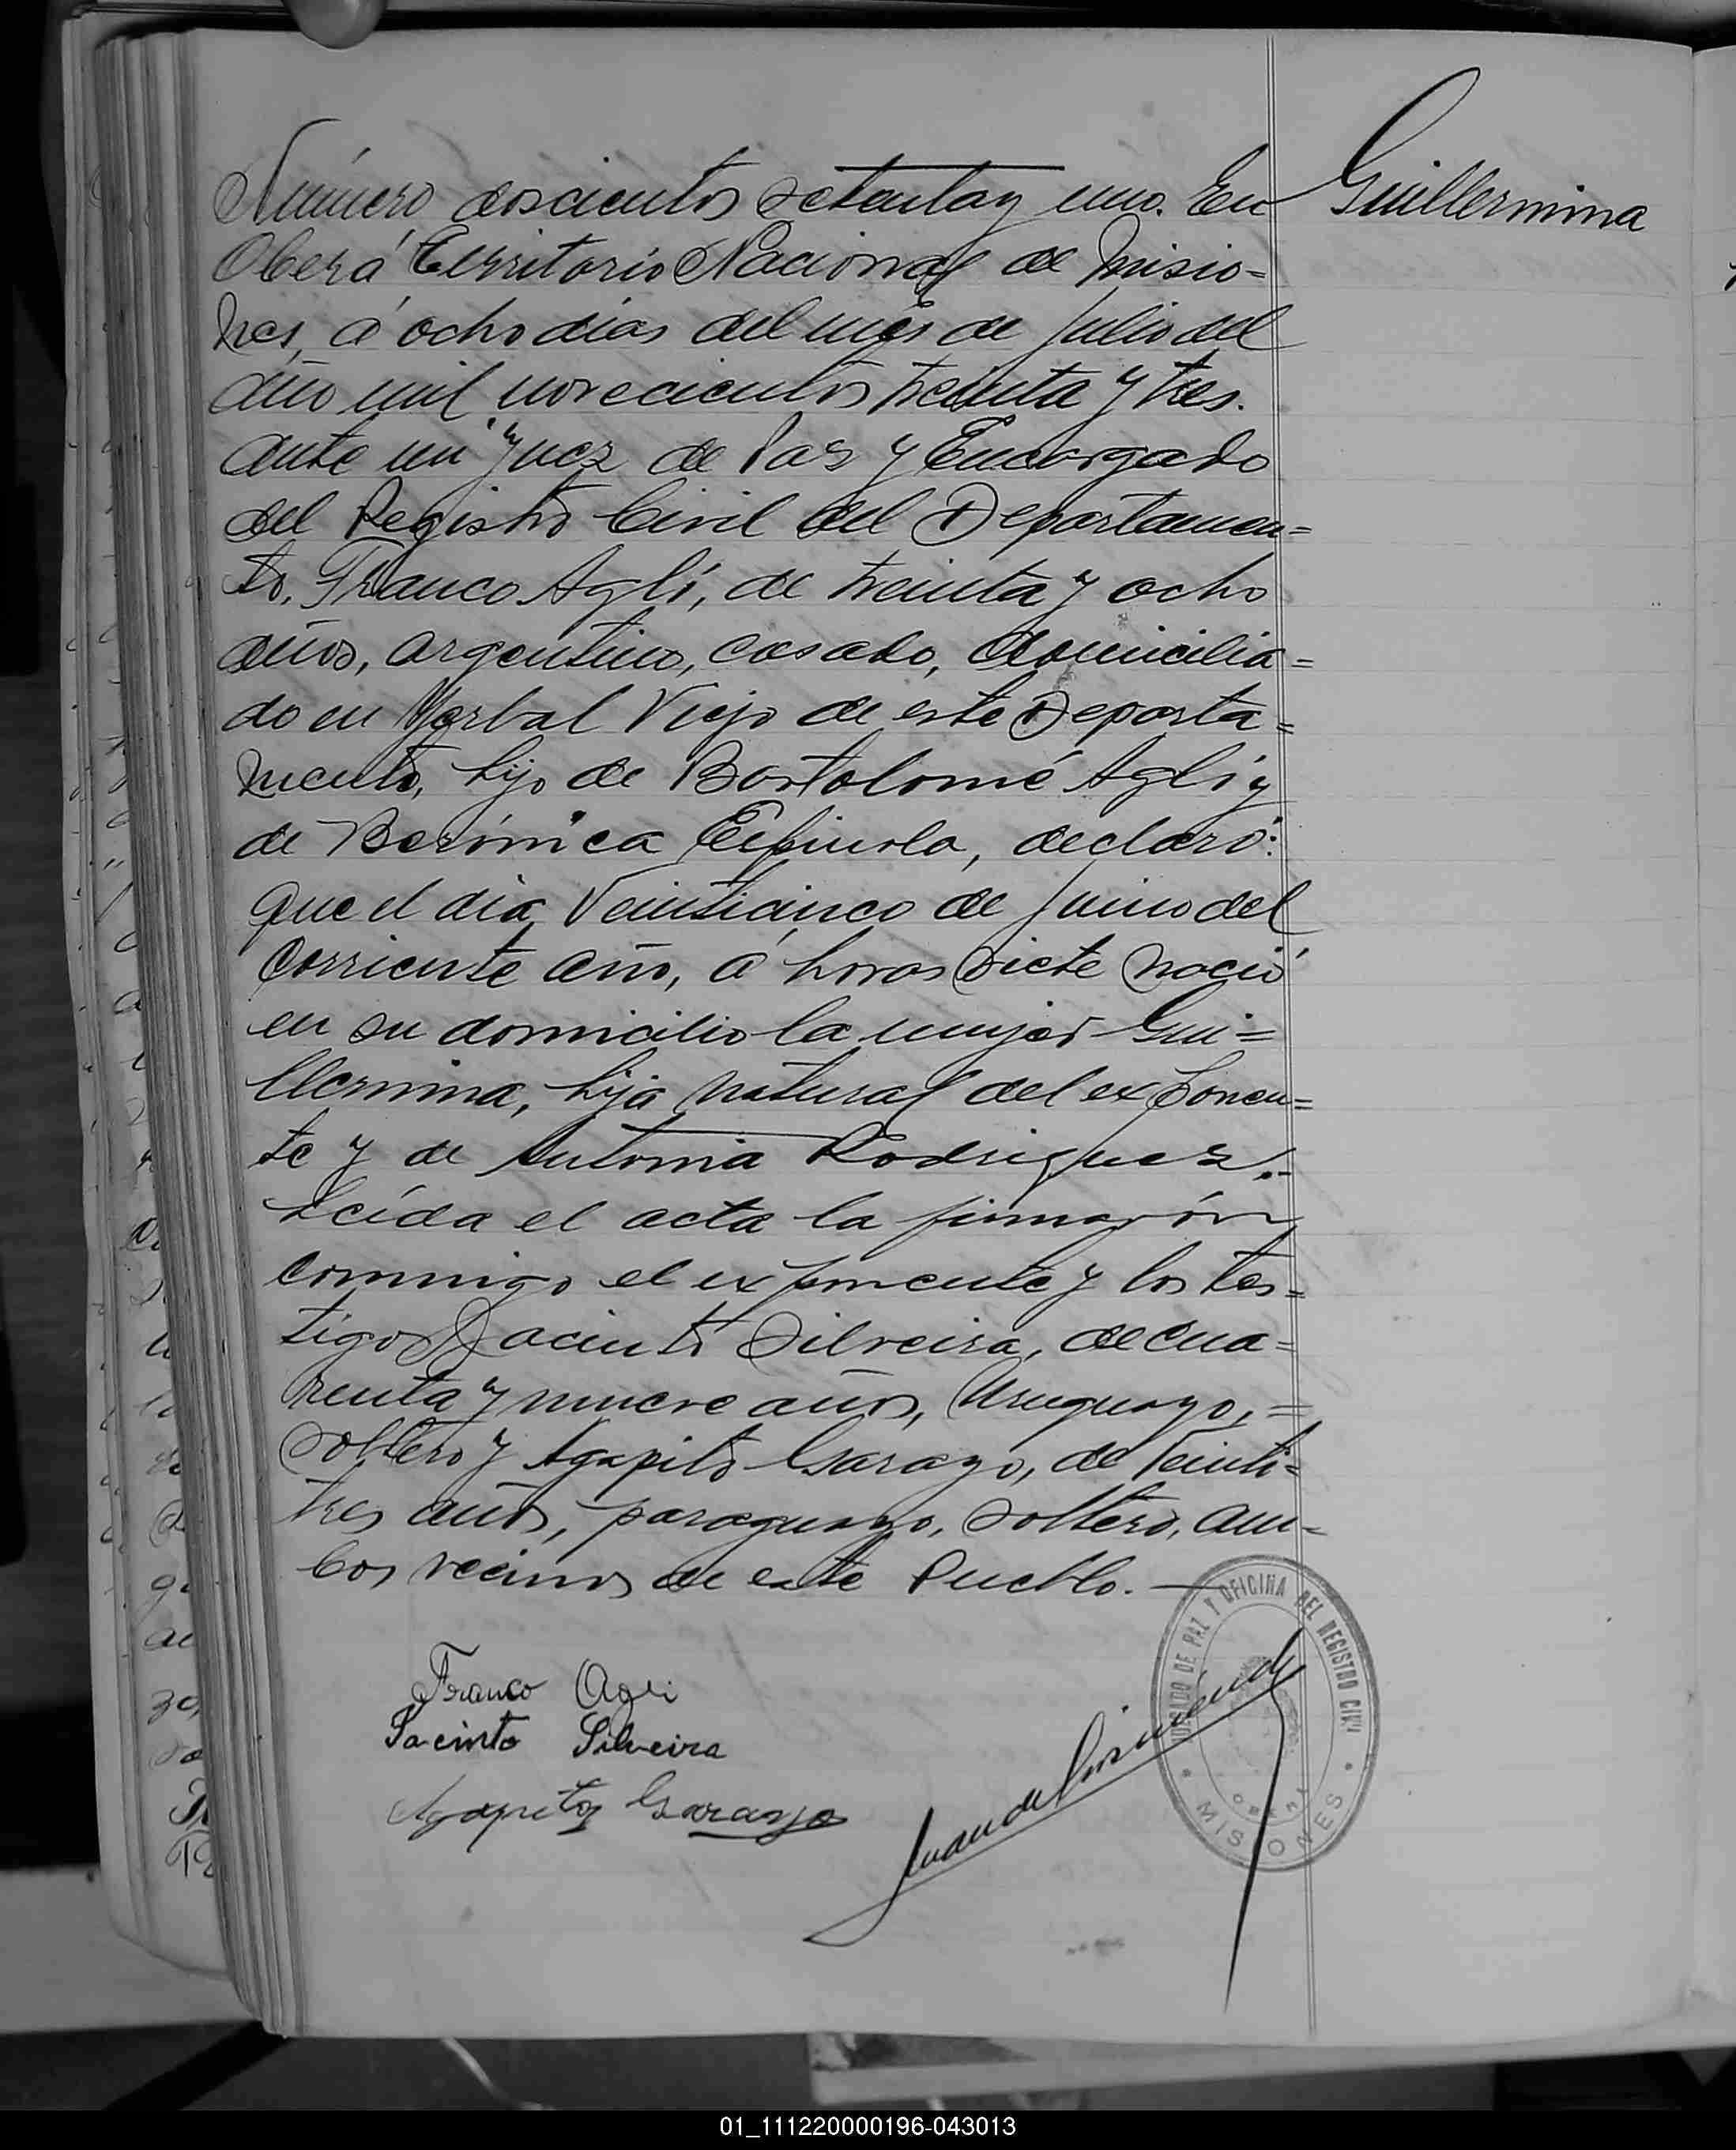 Número doscientos setenta y uno. En
Guillermina
Oberá Territorio Nacional de Misio=
nes, á ocho días del mes de Julio del
año mil novecientos treinta y tres.
ante mi Juez de Paz y Encargado
del Registro Civil del Departamen=
to, Franco Aglí, de treinta y ocho
años, argentino, casado, domicilia=
do en Yerbal Viejo de este Departa=
mento, hijo de Bartolomé Aglí y
de Berónica Espinola, declaró:
que el día Veinticinco de Junio del
corriente año, á horas siete nació
en su domicilio la mujer Gui=
llermina, hija natural del exponen=
te y de Antonia Rodriguez.-
Leída el acta la firmarón
commigo el exponente y los tes=
tigos Jacinto Silveira, de cua=
renta y nueve años, Uruguayo, =
soltero y Agapito Garayo, de Veinti=
tres años, paraguayo, soltero, am=
bos vecinos de este Pueblo.—
JUZGADO DE PAZ Y OFICINA DEL REGISTRO CIVIL
OBERÁ
• MISIONES •
Franco Agli
Jacinto Silveira
Agapito Garayo
Juan de
01_111220000196-043013